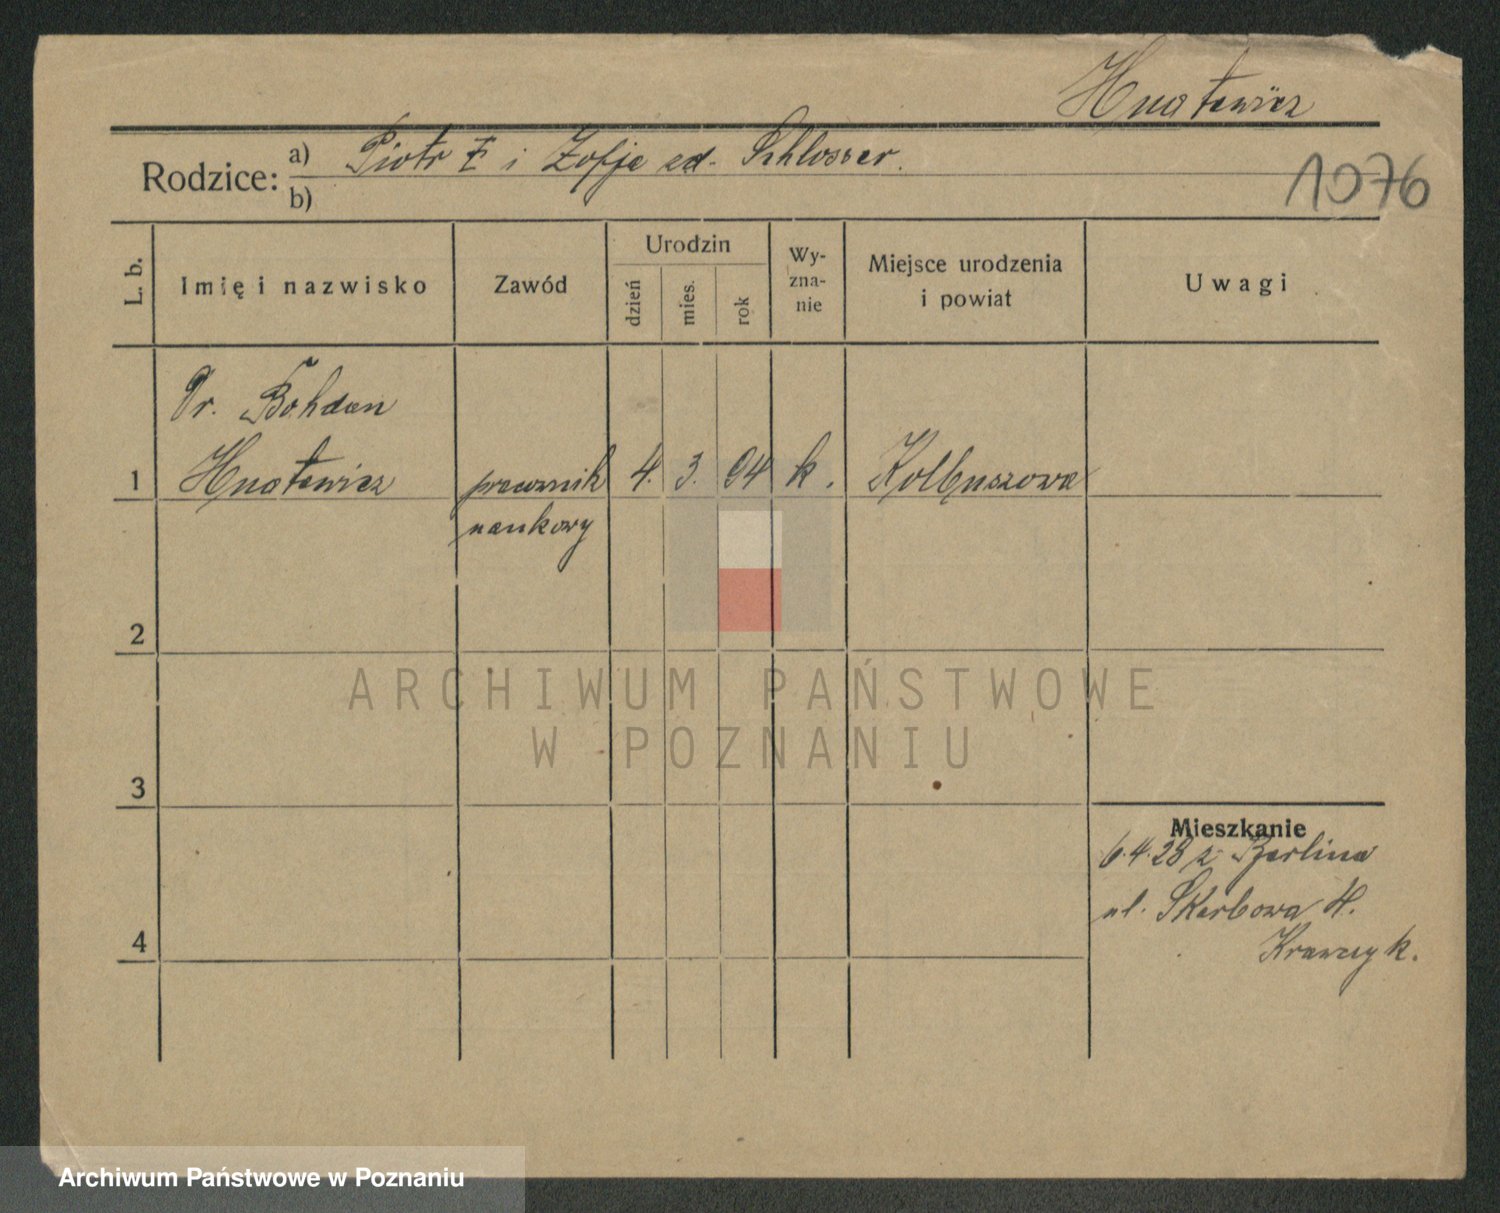 Hnatewicz
Rodzice: a) Piotr i Zofja zd. Schlosser.
b)
1076
L. b.
Imię i nazwisko
Zawód
Urodzin
dzień
mies.
rok
Wy-
zna-
nie
Miejsce urodzenia
i powiat
Uwagi
Dr. Bohdan
1 Hnatewicz pracownik 4. 3. 94 k. Kolbuszowa
naukowy
2
3
4
Mieszkanie
6.4.28 z Berlina
ul. Skarbowa 4.
Krawczyk.
ARCHIWUM PAŃSTWOWE
W POZNANIU
Archiwum Państwowe w Poznaniu